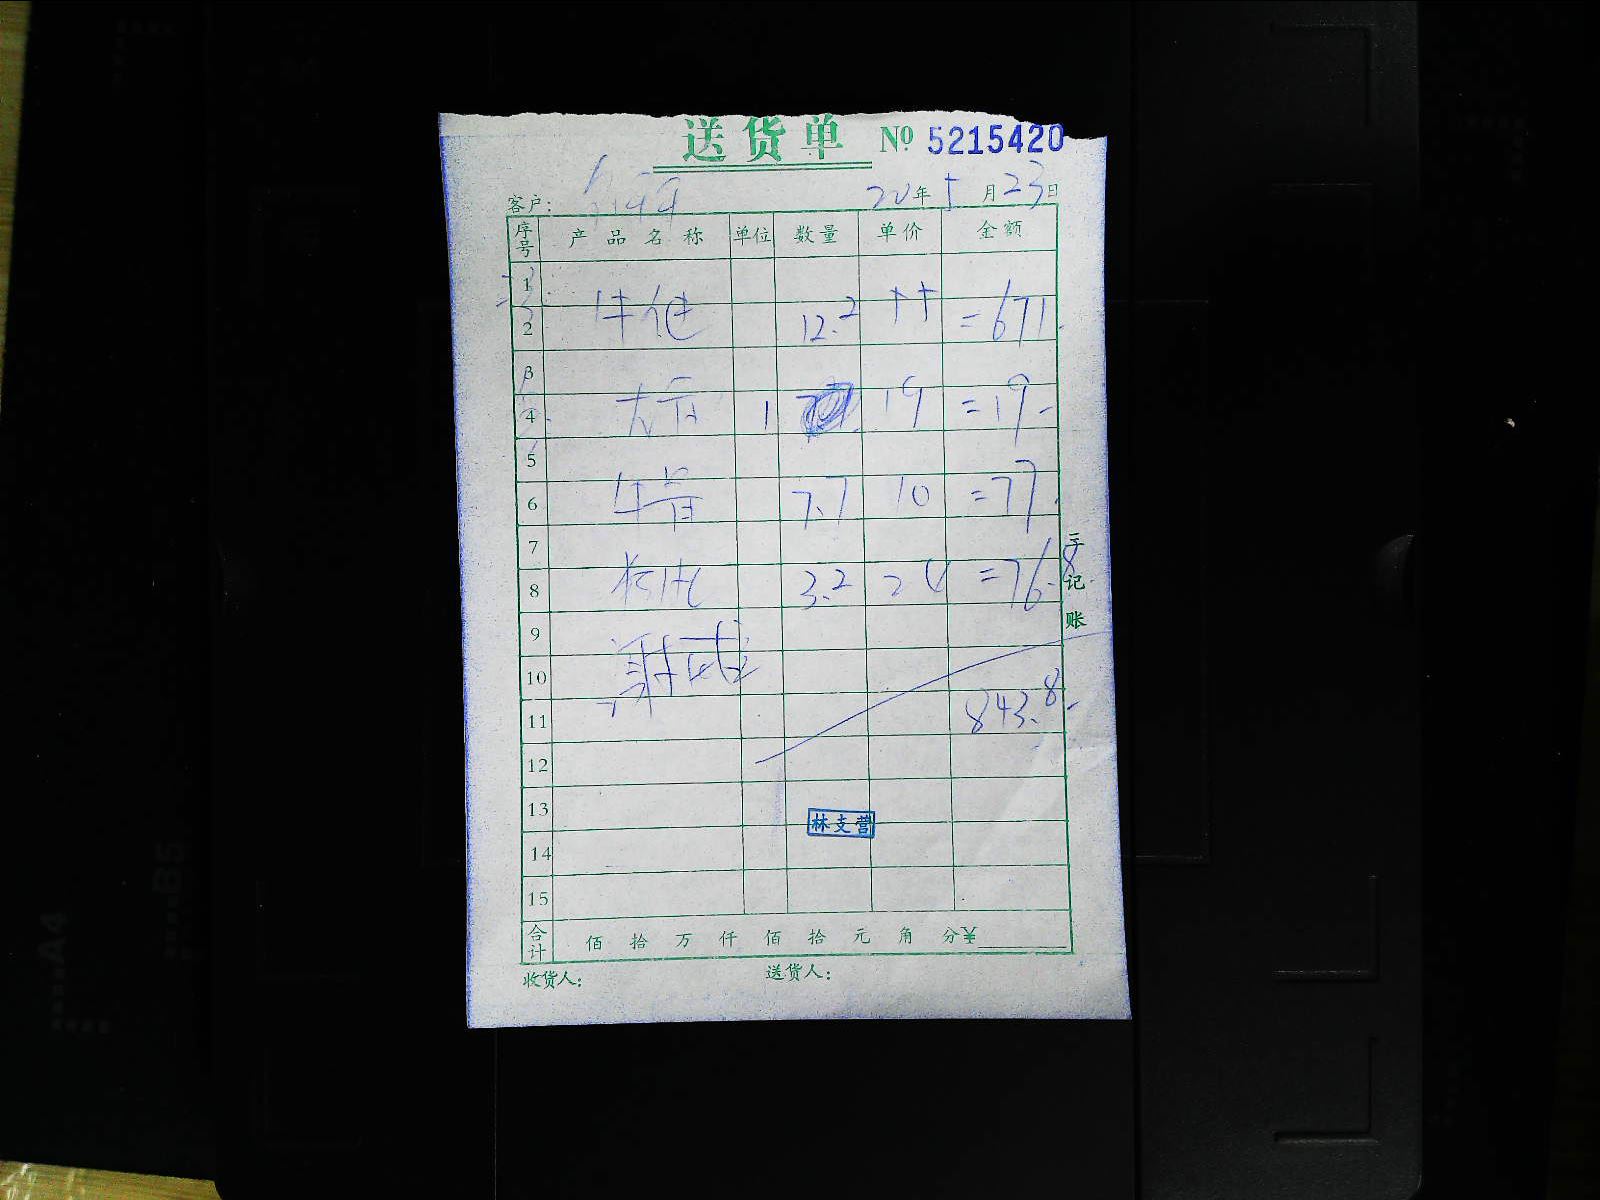 送货单 № 5215420
客户: 20年5月23日
序号 产品名称 单位 数量 单价 金额
1
2 牛 12.2 = 671.
3
4 大 1 19 = 19.-
5
6 牛骨 7.7 10 = 77.
7
8 3.2 24 = 76.8
9
10
11 843.8.-
12
13
林支营
14
15
合计 佰 拾 万 仟 佰 拾 元 角 分 ¥
收货人: 送货人:
记账
A4
B5